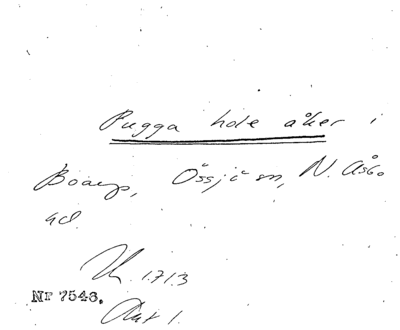 Pugga hole åker i
Boarp, Össjö sn, N. Åsbo
hd.
1713
Nr 7546.
Akt 1.